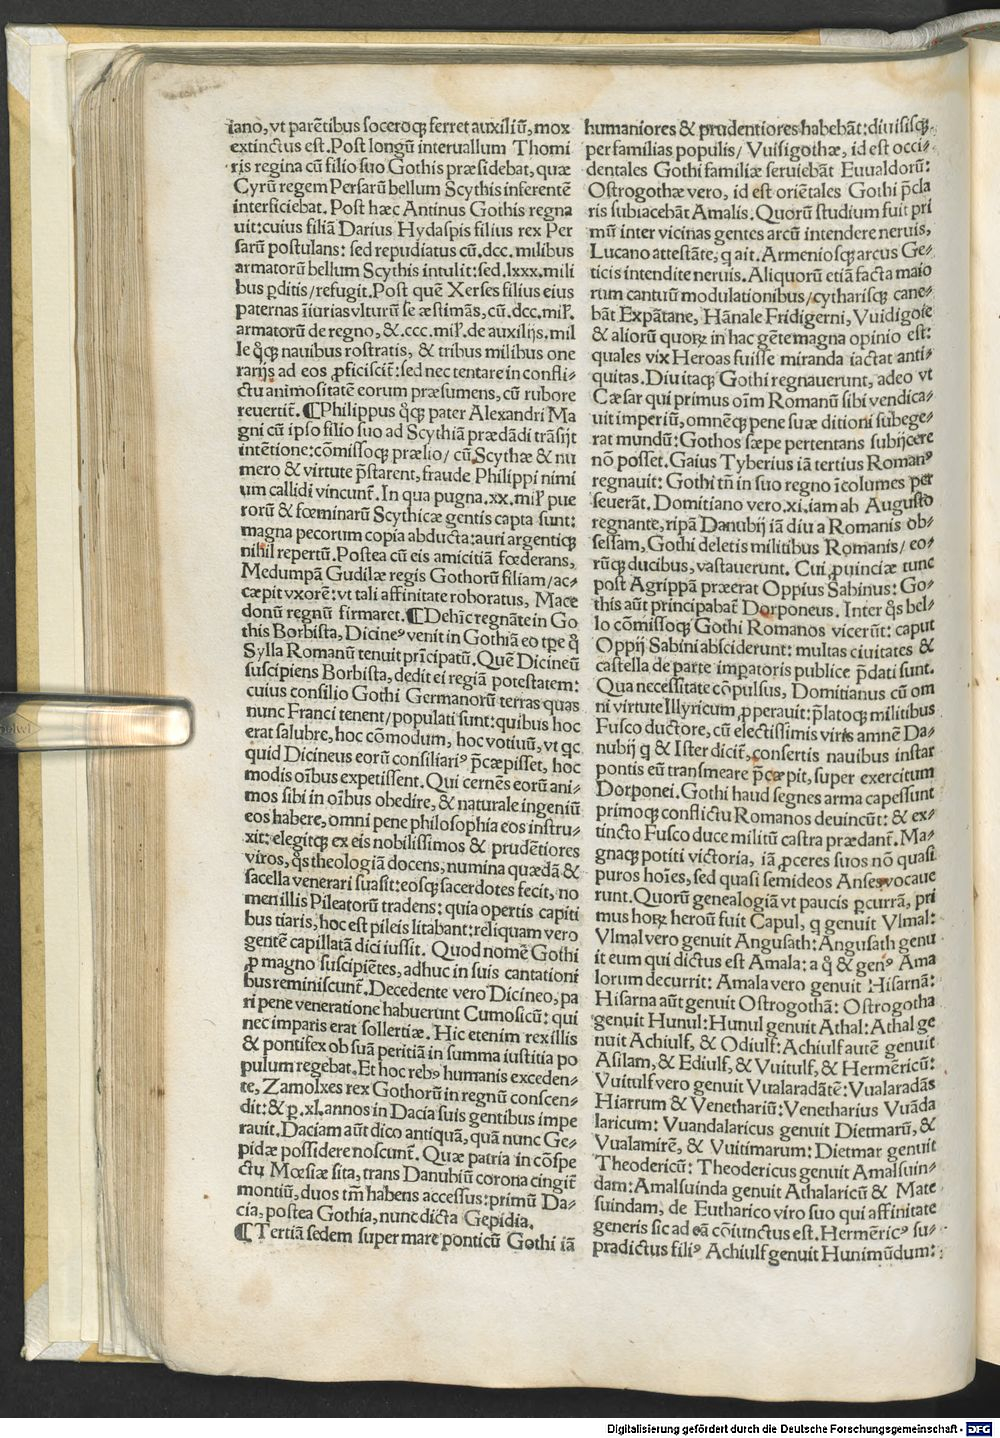 iano, vt parẽtibus soceroqꝫ ferret auxiliũ, mox
extinctus est. Post longũ interuallum Thomi
ris regina cũ filio suo Gothis præsidebat, quæ
Cyrũ regem Persarũ bellum Scythis inferentẽ
interficiebat. Post hæc Antinus Gothis regna
uit: cuius filiã Darius Hydaspis filius rex Per
sarũ postulans: sed repudiatus cũ .dcc. milibus
armatorũ bellum Scythis intulit: sed .lxxx. mili
bus ꝑditis/ refugit. Post quẽ Xerses filius eius
paternas ĩiurias vlturũ se æstimãs, cũ .dcc. mil̓.
armatorũ de regno, & .ccc. mil̓. de auxilijs. mil
le qͥqꝫ nauibus rostratis, & tribus milibus one
rarijs ad eos ꝓficiscit̃: sed nec tentare in confli⸗
ctu animositatẽ eorum præsumens, cũ rubore
reuertit̃. ¶ Philippus qͥqꝫ pater Alexandri Ma
gni cũ ipso filio suo ad Scythiã prædãdi trãsijt
intẽtione: cõmissoqꝫ prælio/ cũ Scythæ & nu
mero & virtute p̃starent, fraude Philippi nimi
um callidi vincunt̃. In qua pugna .xx. mil̓ pue
rorũ & fœminarũ Scythicæ gentis capta sunt:
magna pecorum copia abducta: auri argentiqꝫ
nihil repertũ. Postea cũ eis amicitiã fœderans,
Medumpã Gudilæ regis Gothorũ filiam/ ac⸗
cæpit vxorẽ: vt tali affinitate roboratus, Mace
donũ regnũ firmaret. ¶ Dehĩc regnãte in Go
this Borbista, Dicineꝰ venit in Gothiã eo tp̃e qͦ
Sylla Romanũ tenuit prĩcipatũ. Quẽ Dicineũ
suscipiens Borbista, dedit ei regiã potestatem:
cuius consilio Gothi Germanorũ terras quas
nunc Franci tenent/ populati sunt: quibus hoc
erat salubre, hoc cõmodum, hoc votiuũ, vt qͥc
quid Dicineus eorũ consiliariꝰ p̃cæpisset, hoc
modis oĩbus expetissent. Qui cernẽs eorũ ani⸗
mos sibi in oĩbus obedire, & naturale ingeniũ
eos habere, omni pene philosophia eos instru⸗
xit: elegitqꝫ ex eis nobilissimos & prudẽtiores
viros, qͦs theologiã docens, numina quædã &
sacella venerari suasit: eosqꝫ sacerdotes fecit, no
men illis Pileatorũ tradens: quia opertis capiti
bus tiaris, hoc est pileis litabant: reliquam vero
gentẽ capillatã dici iussit. Quod nomẽ Gothi
ꝓ magno suscipiẽtes, adhuc in suis cantationi
bus reminiscunt̃. Decedente vero Dicineo, pa
ri pene veneratione habuerunt Cumosicũ: qui
nec imparis erat sollertiæ. Hic etenim rex illis
& pontifex ob suã peritiã in summa iustitia po
pulum regebat. Et hoc rebꝰ humanis exceden⸗
te, Zamolxes rex Gothorũ in regnũ conscen⸗
dit: & ꝑ .xl. annos in Dacia suis gentibus impe
rauit. Daciam aũt dico antiquã, quã nunc Ge⸗
pidæ possidere noscunt̃. Quæ patria in cõspe
ctu Mœsiæ sita, trans Danubiũ corona cingit̃
montiũ, duos tm̃ habens accessus: primũ Da⸗
cia, postea Gothia, nunc dicta Gepidia.
¶ Tertiã sedem super mare ponticũ Gothi iã
humaniores & prudentiores habebãt: diuisisqꝫ
per familias populis/ Vuisigothæ, id est occi⸗
dentales Gothi familiæ seruiebãt Euualdorũ:
Ostrogothæ vero, id est oriẽtales Gothi p̃cla
ris subiacebãt Amalis. Quorũ studium fuit pri
mũ inter vicinas gentes arcũ intendere neruis,
Lucano attestãte, q ait. Armeniosqꝫ arcus Ge⸗
ticis intendite neruis. Aliquorũ etiã facta maio
rum cantuũ modulationibus/ cytharisqꝫ cane⸗
bãt Expãtane, Hãnale Fridigerni, Vuidigoie
& aliorũ quoꝝ in hac gẽte magna opinio est:
quales vix Heroas fuisse miranda iactat anti⸗
quitas. Diu itaqꝫ Gothi regnauerunt, adeo vt
Cæsar qui primus oĩm Romanũ sibi vendica⸗
uit imperiũ, omnẽqꝫ pene suæ ditioni subege⸗
rat mundũ: Gothos sæpe pertentans subijcere
nõ posset. Gaius Tyberius iã tertius Romanꝰ
regnauit: Gothi tñ in suo regno ĩcolumes per
seuerãt. Domitiano vero .xi. iam ab Augusto
regnante, ripã Danubij iã diu a Romanis ob⸗
sessam, Gothi deletis militibus Romanis/ eo⸗
rũqꝫ ducibus, vastauerunt. Cui ꝓuinciæ tunc
post Agrippã præerat Oppius Sabinus: Go⸗
this aũt principabat̃ Dorponeus. Inter qͦs bel⸗
lo cõmissoqꝫ Gothi Romanos vicerũt: caput
Oppij Sabini absciderunt: multas ciuitates &
castella de parte imꝑatoris publice p̃dati sunt.
Qua necessitate cõpulsus, Domitianus cũ om
ni virtute Illyricum ꝓperauit: p̃latoqꝫ militibus
Fusco ductore, cũ electissimis viris amnẽ Da⸗
nubij q & Ister dicit̃, consertis nauibus instar
pontis eũ transmeare p̃cæpit, super exercitum
Dorponei. Gothi haud segnes arma capessunt
primoqꝫ conflictu Romanos deuincũt: & ex⸗
tincto Fusco duce militũ castra prædant̃. Ma⸗
gnaqꝫ potiti victoria, iã ꝓceres suos nõ quasi
puros hoĩes, sed quasi semideos Anses vocaue
runt. Quorũ genealogiã vt paucis ꝑcurrã, pri
mus hoꝝ heroũ fuit Capul, q genuit Vlmal:
Vlmal vero genuit Angusath: Angusath genu
it eum qui dictus est Amala: a qͦ & genꝰ Ama
lorum decurrit: Amala vero genuit Hisarnã:
Hisarna aũt genuit Ostrogothã: Ostrogotha
genuit Hunul: Hunul genuit Athal: Athal ge
nuit Achiulf, & Odiulf: Achiulf autẽ genuit
Asilam, & Ediulf, & Vuitulf, & Hermẽricũ:
Vuitulf vero genuit Vualaradãtẽ: Vualaradãs
Hiarrum & Venethariũ: Venetharius Vuãda
laricum: Vuandalaricus genuit Dietmarũ, &
Vualamirẽ, & Vuitimarum: Dietmar genuit
Theodericũ: Theodericus genuit Amalsuin⸗
dam: Amalsuinda genuit Athalaricũ & Mate
suindam, de Eutharico viro suo qui affinitate
generis sic ad eã cõiunctus est. Hermẽricꝰ su⸗
pradictus filiꝰ Achiulf genuit Hunimũdum:
Digitalisierung gefördert durch die Deutsche Forschungsgemeinschaft - DFG